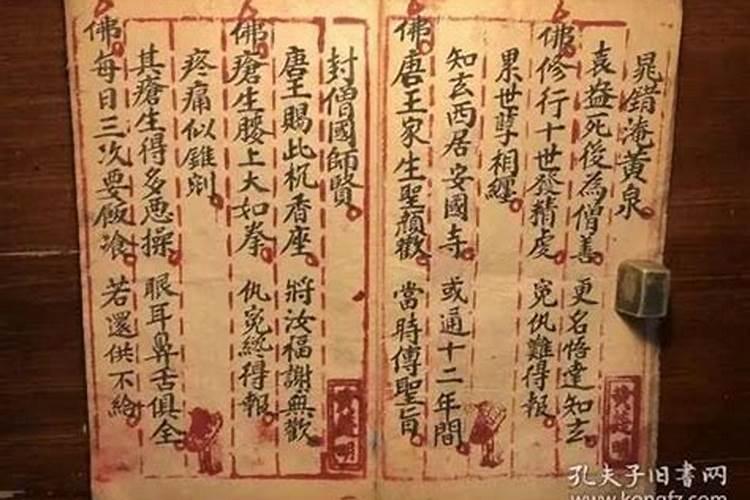 晁錯淹黃泉
袁益死後為僧善 更名悟達知玄
佛修行十世發精虔 冤仇難得報
累世孽相纏
知玄西居安國寺 或通十二年間
佛唐王家生聖顏歡 當時傳聖旨
封僧國師賢
唐王賜此杌香座 將汝福謝無歡
佛瘡生腰上大如拳 仇冤終得報
疼痛似錐剜
其瘡生得多惡操 眼耳鼻舌俱全
佛每日三次要飯飡 若還供不給
孔夫子旧书网